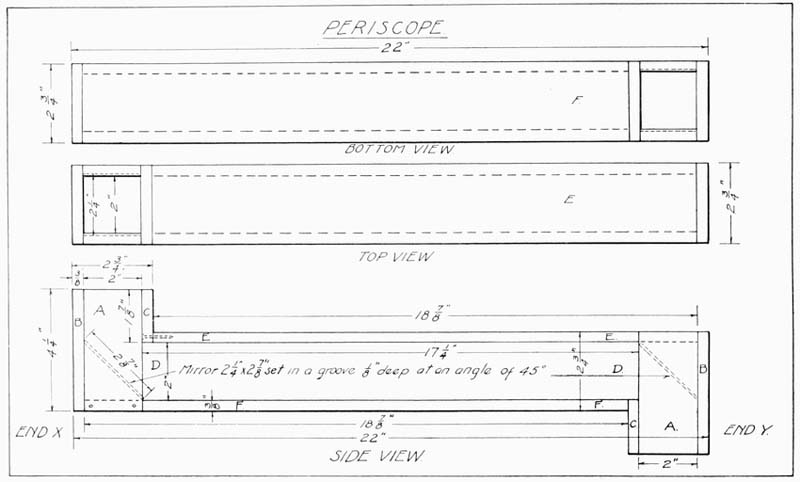 PERISCOPE
22"
2 3/4"
F
BOTTOM VIEW
2 1/4"
2"
E
2 3/4"
TOP VIEW
2 3/4"
3/8
2"
A
C
1 7/8"
18 7/8"
4 1/4"
B
E
E
2 7/8"
D
17 1/4"
2 3/4"
Mirror 2 1/4" x 2 7/8" set in a groove 1/8" deep at an angle of 45°
D
B
2"
3/8"
F
F
18 7/8"
C
A.
END X
22"
END Y.
SIDE VIEW
2"